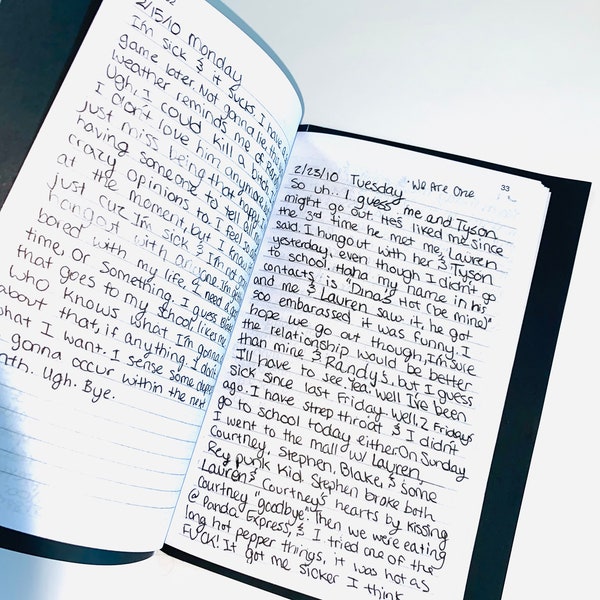 2/15/10 Monday
I'm sick & it sucks. I have a
game later. Not gonna lie, this
weather reminds me of
Ugh, I could kill a bitch.
I don't love him anymore, I
just miss being that happy &
having someone to tell all my
crazy opinions to. I feel so
at the moment, but I know it's
just cuz I'm sick & I'm not
hangout with anyone. I'm
bored with my life, & need a
time, or something. I guess Blake
that goes to my school, likes me
who knows what I'm gonna
about that, if anything. I don't
what I want. I sense some
gonna occur within the next
Ugh. Bye.
We Are One
33
2/23/10 Tuesday
So uh.. I guess me and Tyson
might go out. He's liked me since
the 3rd time he met me, Lauren
said. I hungout with her & Tyson
yesterday, even though I didn't go
to school. Haha my name in his
contacts is "Dinas Hot (be mine)"
and me & Lauren saw it, he got
soo embarassed it was funny. I
hope we go out though, I'm sure
the relationship would be better
than mine & Randy's, but I guess
I'll have to see. Yea, well I've been
sick since last Friday well, 2 Fridays
ago. I have strep throat & I didn't
go to school today either. On Sunday
I went to the mall w/ Lauren,
Courtney, Stephen, Blake, & some
Rey punk kid. Stephen broke both
Lauren & Courtney's hearts by kissing
Courtney "goodbye". Then we were eating
@ Panda Express, & I tried one of the
long hot pepper things, it was hot as
FUCK! It got me sicker I think